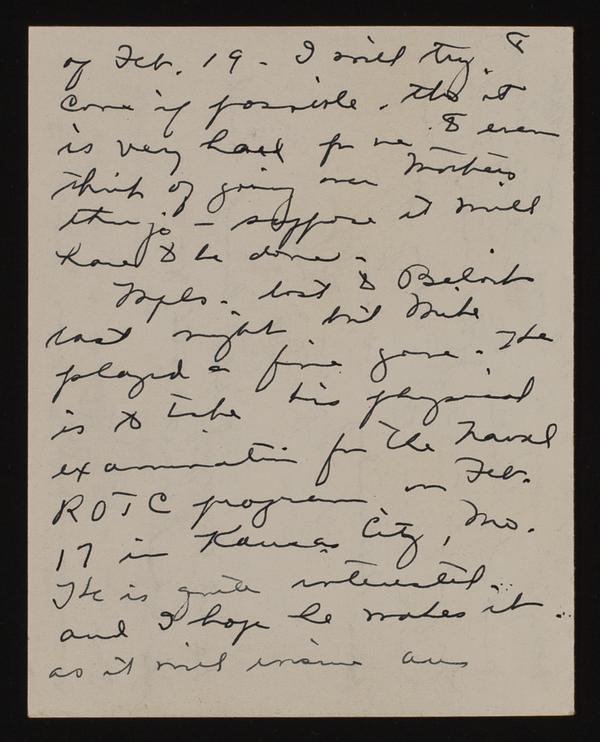 of Feb. 19 - I will try &
come if possible. tho it
is very hard for me & even
think of going over Mothers
things - suppose it will
have to be done.
Mpls. lost to Beloit
last night but Mike
played a fine game. He
is to take his physical
examination for the Naval
ROTC program on Feb.
17 in Kansas City, Mo.
He is quite interested
and I hope he makes it
as it will insure